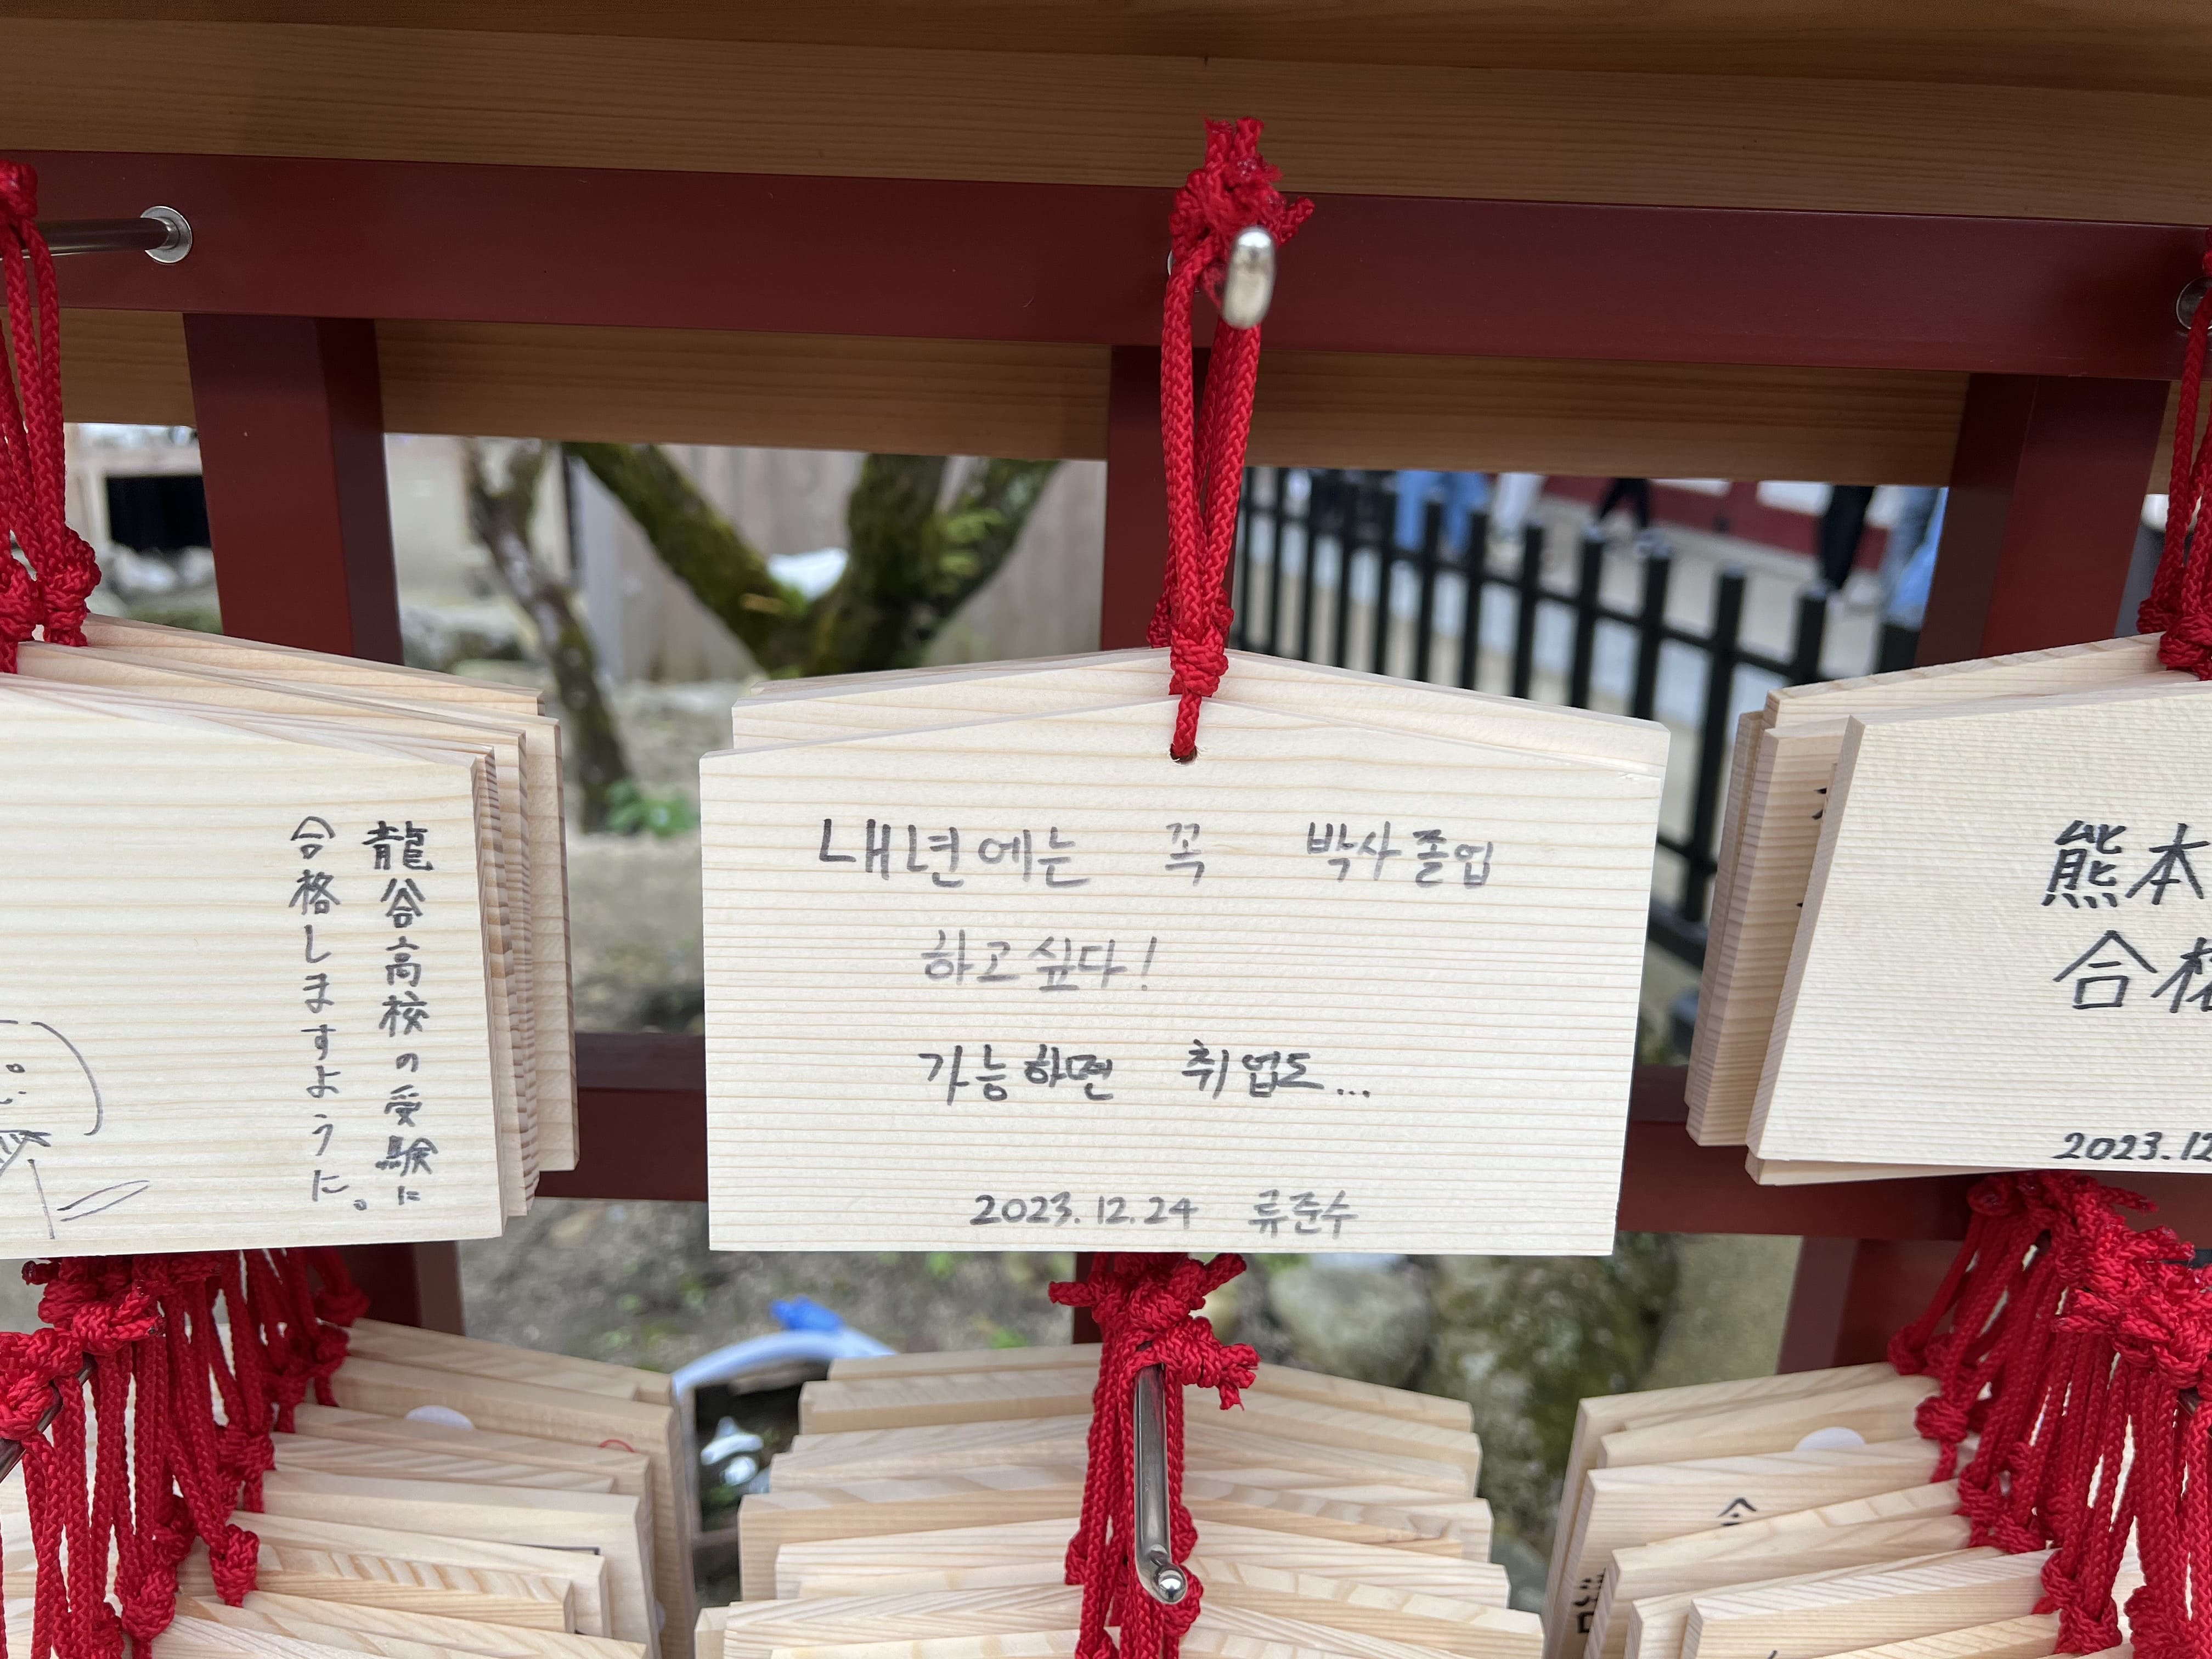 龍谷高校の受験に
合格しますように。
내년에는 꼭 박사졸업
하고싶다!
가능하면 취업도...
2023.12.24 류준수
熊本
合格
2023.12